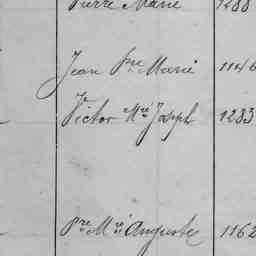 Pierre Marie 1288
Jean Pre Marie 1146
Victor Mie Joseph 1283
Pre Mie Auguste 1162